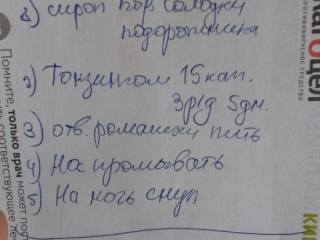 1) сироп кор. солодки
подорожника
2) Тонзилгон 15 кап.
3 р/д 5 дн.
3) отв. ромашки пить
4) Нос промывать
5) На ночь
Помните, только врач может
соответствующее
АГОЦЕЛ
ПРОТИВОВИРУСНОЕ СРЕДСТВО